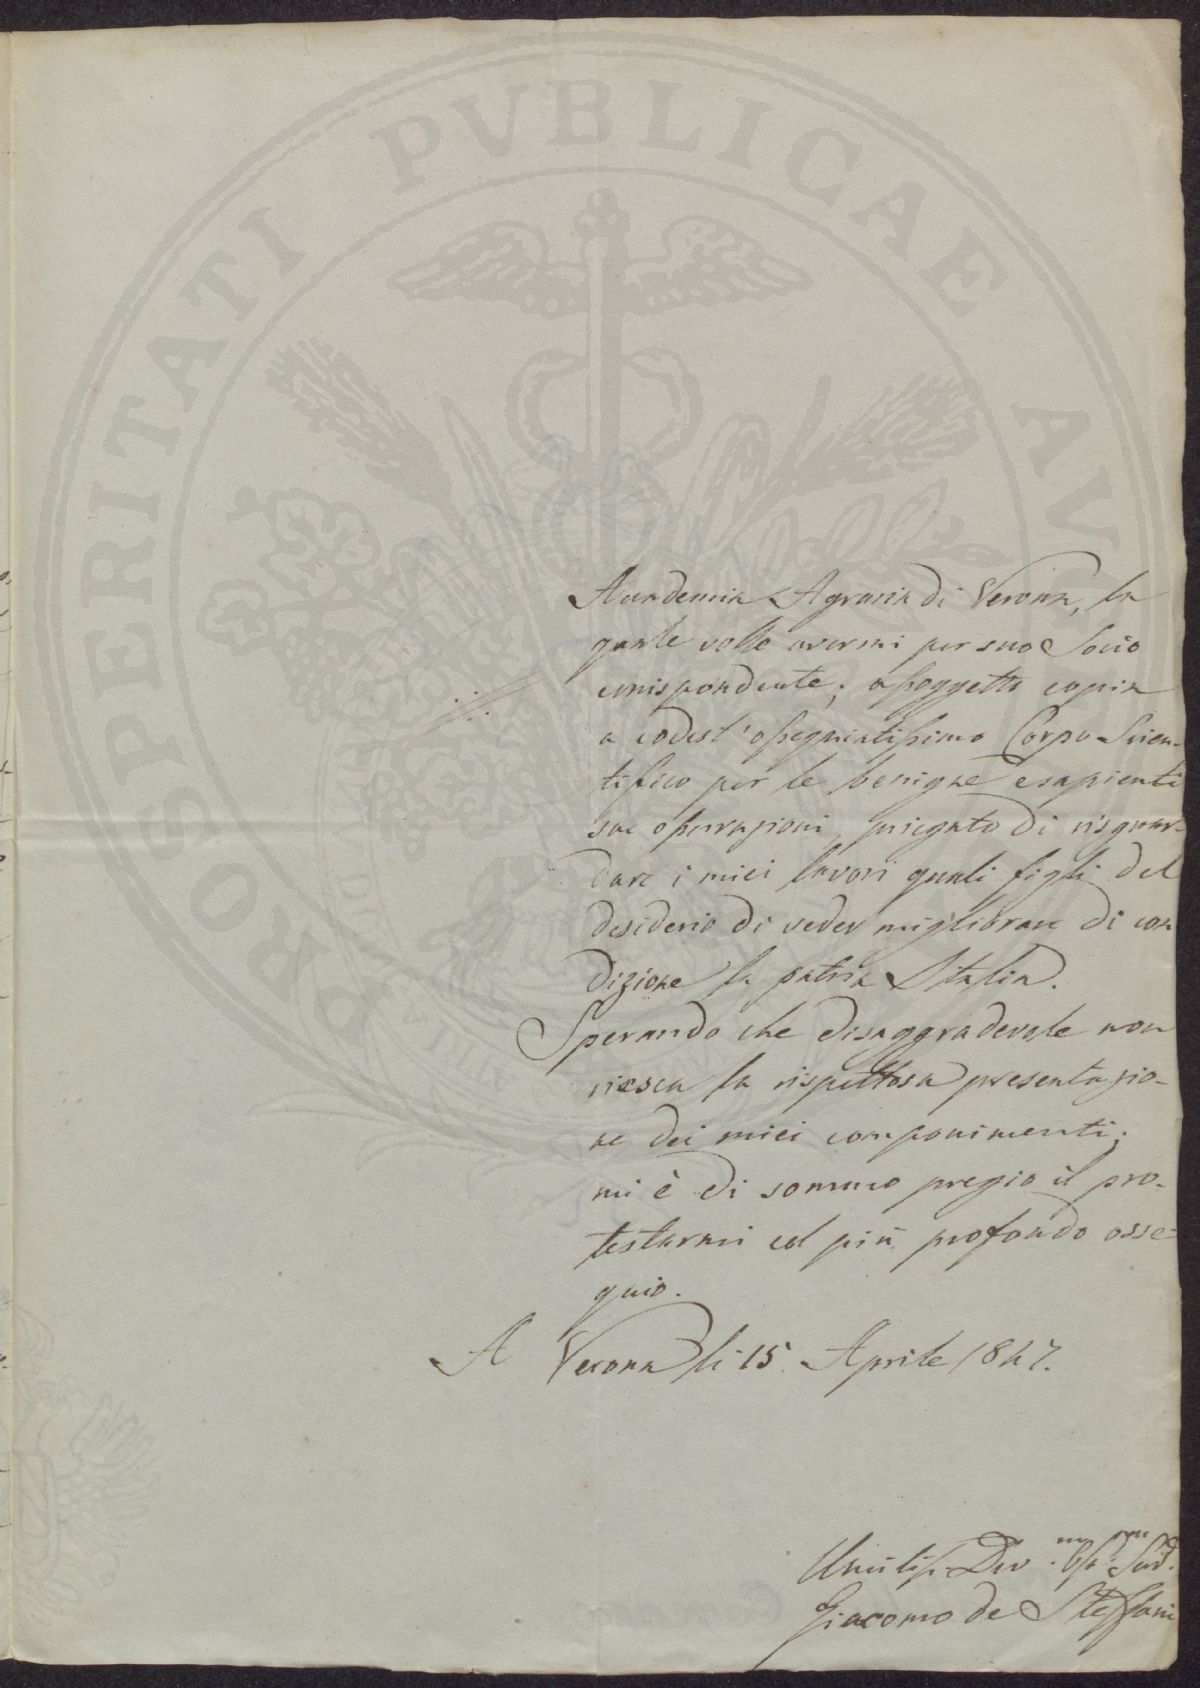 PROSPERITATI PVBLICAE AV
Accademia Agraria di Verona, la
quale volle avermi per suo Socio
corrispondente; assoggetto copia
a codest' ossequiatissimo Corpo Scien-
tifico per le benigne e sapienti
sue osservazioni, pregato di risguar-
dare i miei lavori quali figli del
desiderio di veder migliorare di con
dizione la patria Italia.
Sperando che disaggradevole non
riesca la rispettosa presentazio-
ne dei miei componimenti;
mi è di sommo pregio il pro-
testarmi col più profondo osse-
quio.
A Verona li 15 Aprile 1847.
Umiliss. Dev.mo
Giacomo de Steffani